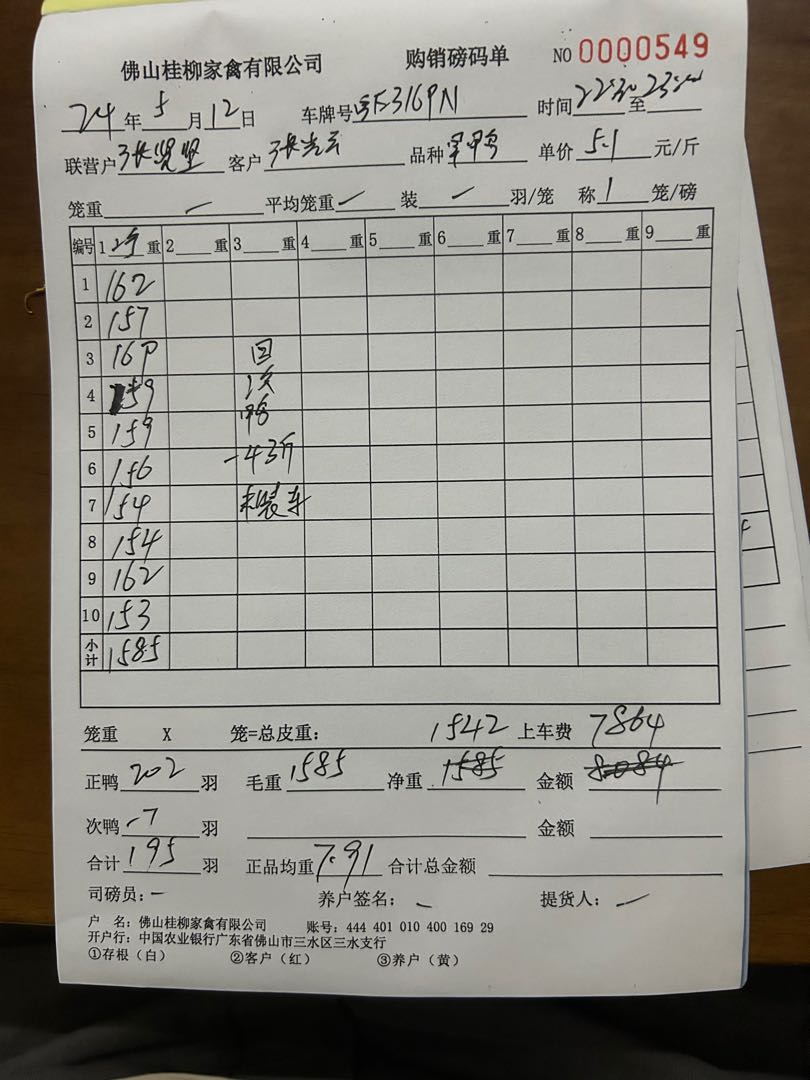 佛山桂柳家禽有限公司 购销磅码单 NO 0000549
24年5月12日 车牌号 时间22:30至
联营户 客户 品种 单价5.1元/斤
笼重 — 平均笼重 — 装 — 羽/笼 称1笼/磅
编号 1 重 2 重 3 重 4 重 5 重 6 重 7 重 8 重 9 重
1 162
2 157
3 169 回
4 159 次
5 159 鸭
6 156 -43斤
7 154 未装车
8 154
9 162
10 153
小计 1585
笼重 X 笼=总皮重: 1542 上车费 7864
正鸭202羽 毛重1585 净重1585 金额8084
次鸭-7羽 金额
合计195羽 正品均重7.91 合计总金额
司磅员:— 养户签名:— 提货人:—
户 名: 佛山桂柳家禽有限公司 账号: 444 401 010 400 169 29
开户行: 中国农业银行广东省佛山市三水区三水支行
①存根(白) ②客户(红) ③养户(黄)